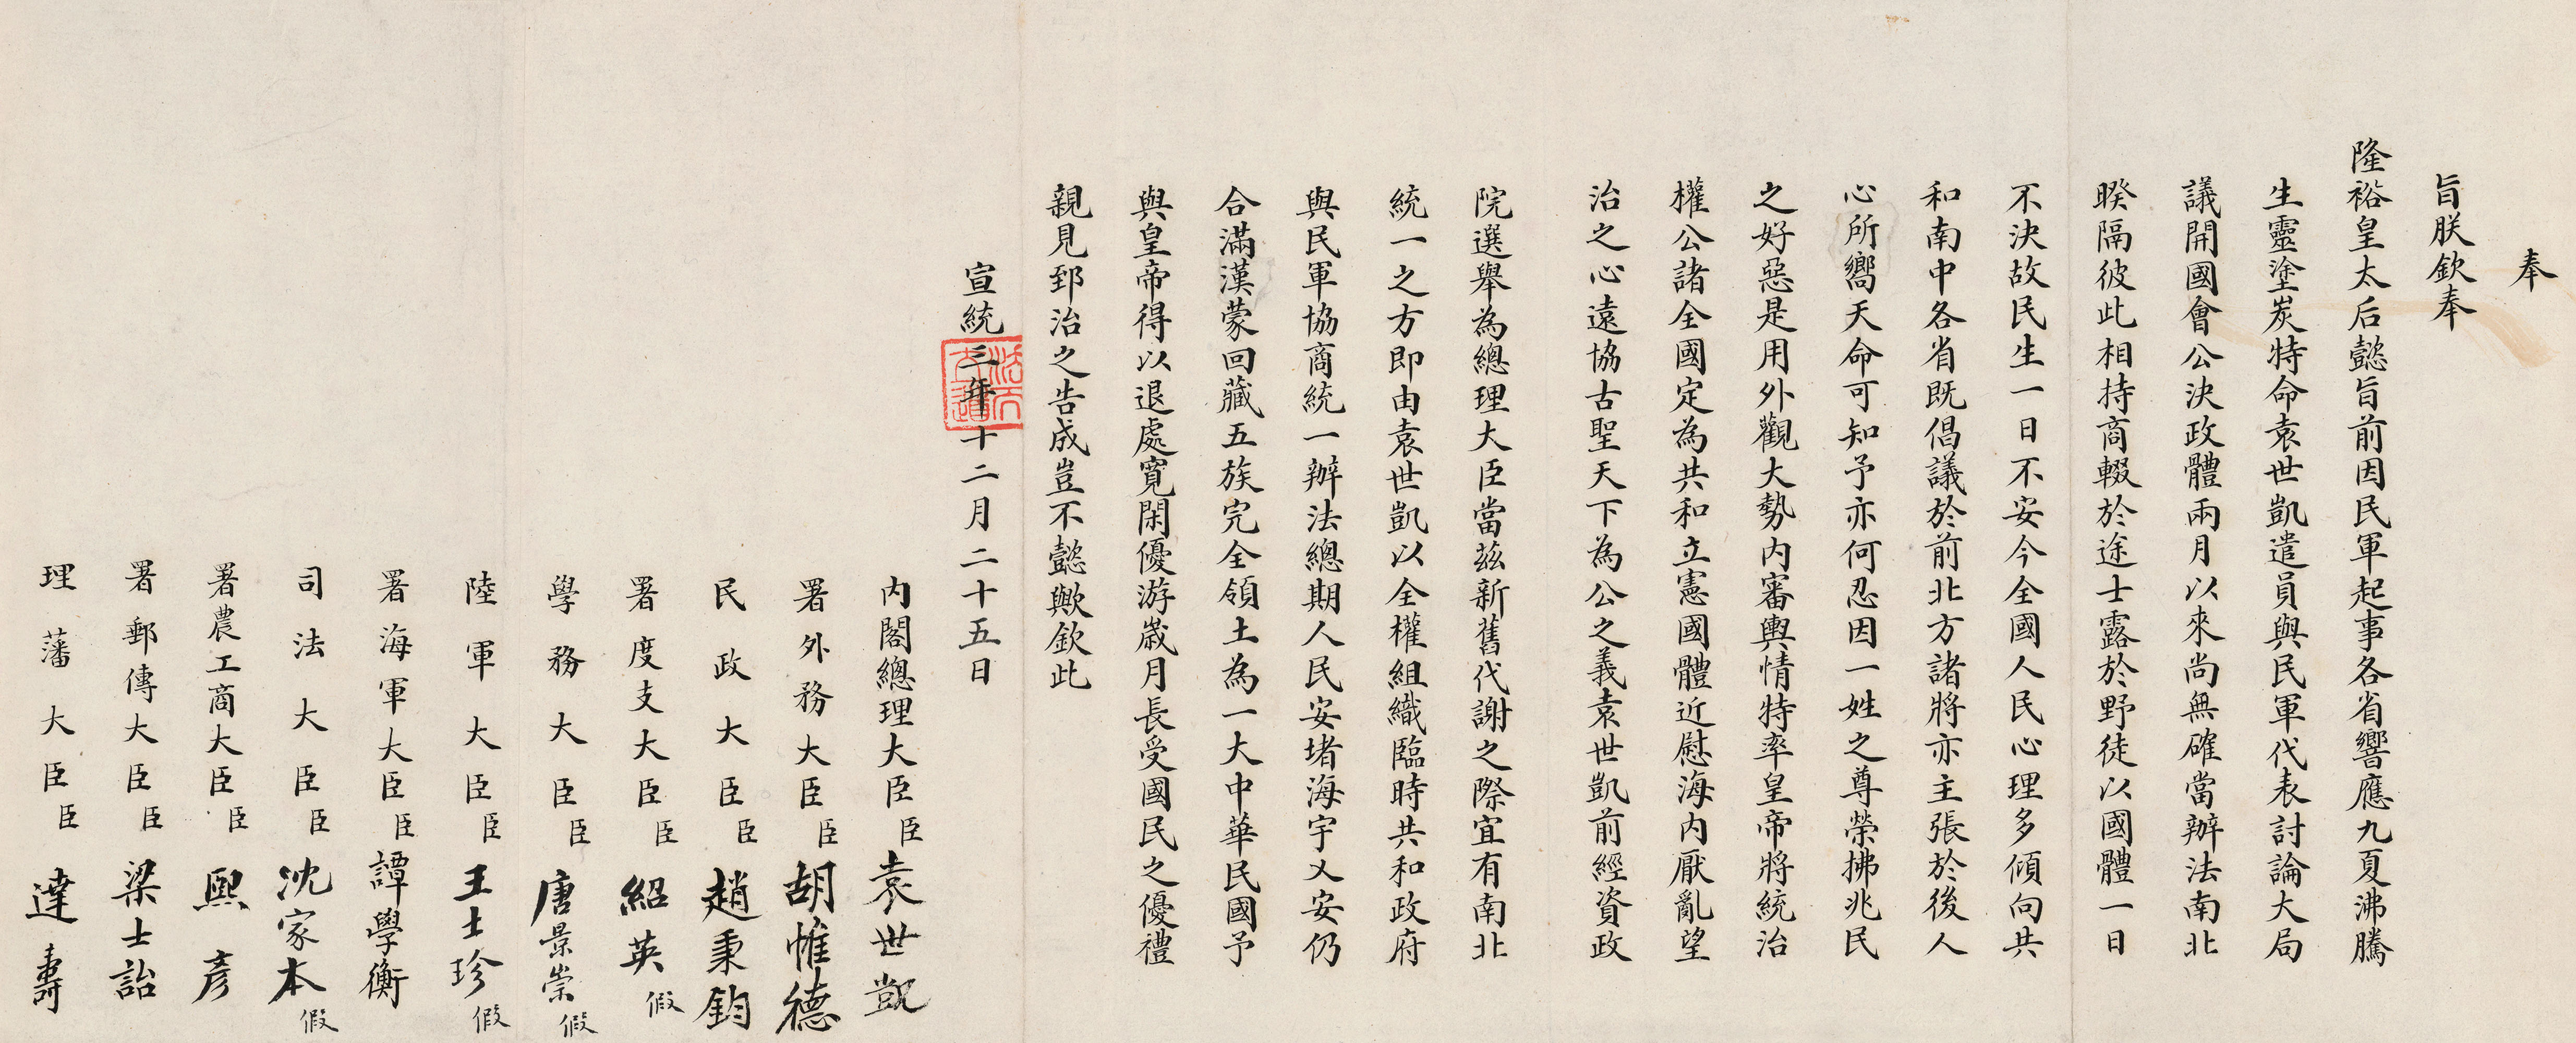 奉
旨朕欽奉
隆裕皇太后懿旨前因民軍起事各省響應九夏沸騰
生靈塗炭特命袁世凱遣員與民軍代表討論大局
議開國會公決政體兩月以來尚無確當辦法南北
暌隔彼此相持商輟於途士露於野徒以國體一日
不決故民生一日不安今全國人民心理多傾向共
和南中各省既倡議於前北方諸將亦主張於後人
心所嚮天命可知予亦何忍因一姓之尊榮拂兆民
之好惡是用外觀大勢內審輿情特率皇帝將統治
權公諸全國定為共和立憲國體近慰海內厭亂望
治之心遠協古聖天下為公之義袁世凱前經資政
院選舉為總理大臣當茲新舊代謝之際宜有南北
統一之方即由袁世凱以全權組織臨時共和政府
與民軍協商統一辦法總期人民安堵海宇乂安仍
合滿漢蒙回藏五族完全領土為一大中華民國予
與皇帝得以退處寬閑優游歲月長受國民之優禮
親見郅治之告成豈不懿歟欽此
宣統三年十二月二十五日
法天立道
內閣總理大臣臣袁世凱
署外務大臣臣胡惟德
民政大臣臣趙秉鈞
署度支大臣臣紹英假
學務大臣臣唐景崇假
陸軍大臣臣王士珍假
署海軍大臣臣譚學衡
司法大臣臣沈家本假
署農工商大臣臣熙彥
署郵傳大臣臣梁士詒
理藩大臣臣達壽